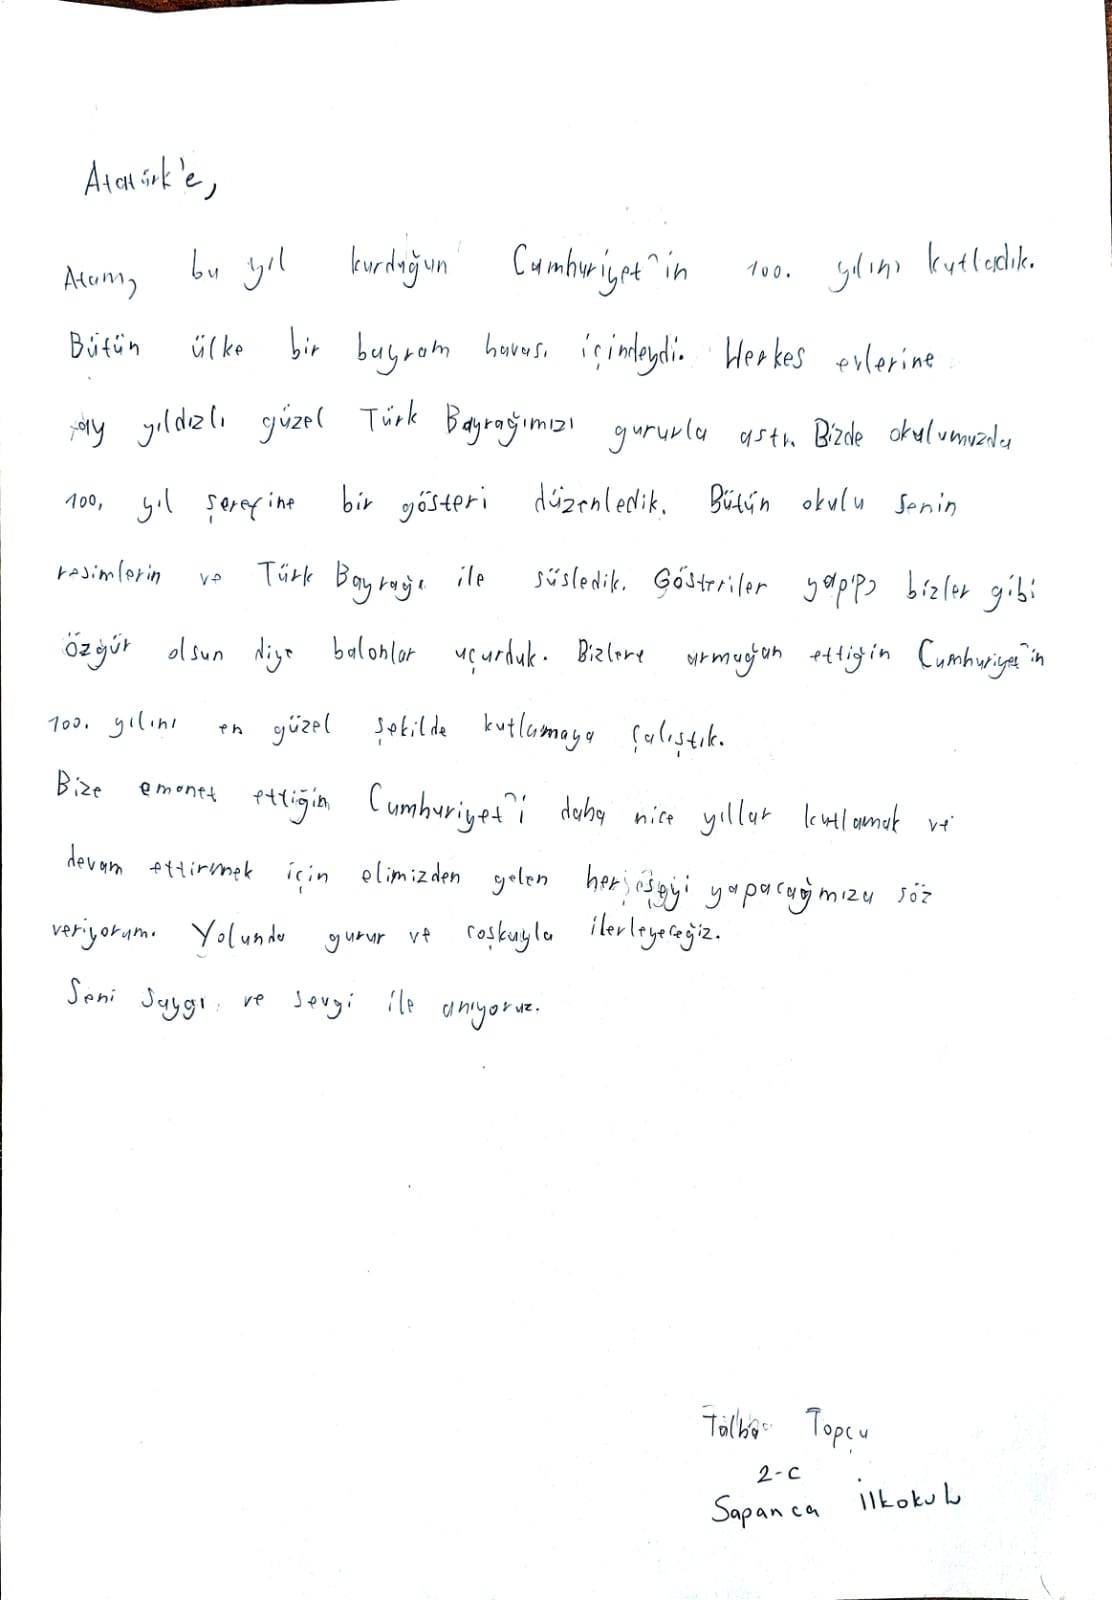 Atatürk'e,
Atam, bu yıl kurduğun Cumhuriyet'in 100. yılını kutladık.
Bütün ülke bir bayram havası içindeydi. Herkes evlerine
ay yıldızlı güzel Türk Bayrağımızı gururla astı. Bizde okulumuzda
100. yıl şerefine bir gösteri düzenledik. Bütün okulu senin
resimlerin ve Türk Bayrağı ile süsledik. Gösteriler yapıp, bizler gibi
özgür olsun diye balonlar uçurduk. Bizlere armağan ettiğin Cumhuriyet'in
100. yılını en güzel şekilde kutlamaya çalıştık.
Bize emanet ettiğin Cumhuriyet'i daha nice yıllar kutlamak ve
devam ettirmek için elimizden gelen yapacağmıza söz
veriyorum. Yolunda gurur ve coşkuyla ilerleyeceğiz.
Seni saygı ve sevgi ile anıyoruz.
Topçu
2-C
Sapanca İlkokulu